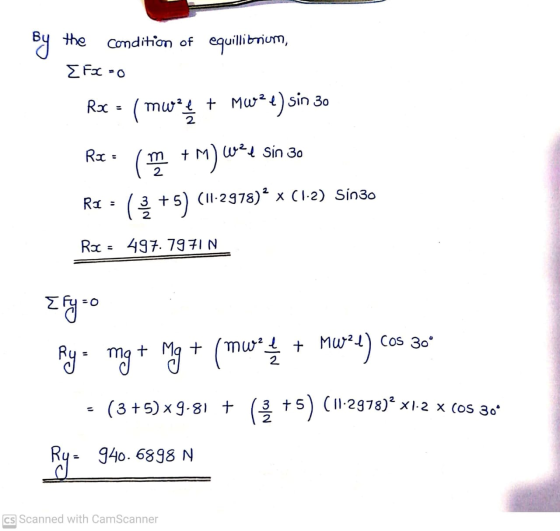 By the condition of equillibrium,
ΣFx = 0
Rx = (mω² l/2 + Mω² l) sin 30
Rx = (m/2 + M) ω² l sin 30
Rx = (3/2 + 5) (11.2978)² × (1.2) Sin30
Rx = 497.7971 N
ΣFy = 0
Ry = mg + Mg + (mω² l/2 + Mω² l) cos 30°
= (3+5) × 9.81 + (3/2 + 5) (11.2978)² × 1.2 × cos 30°
Ry = 940.6898 N
CS Scanned with CamScanner